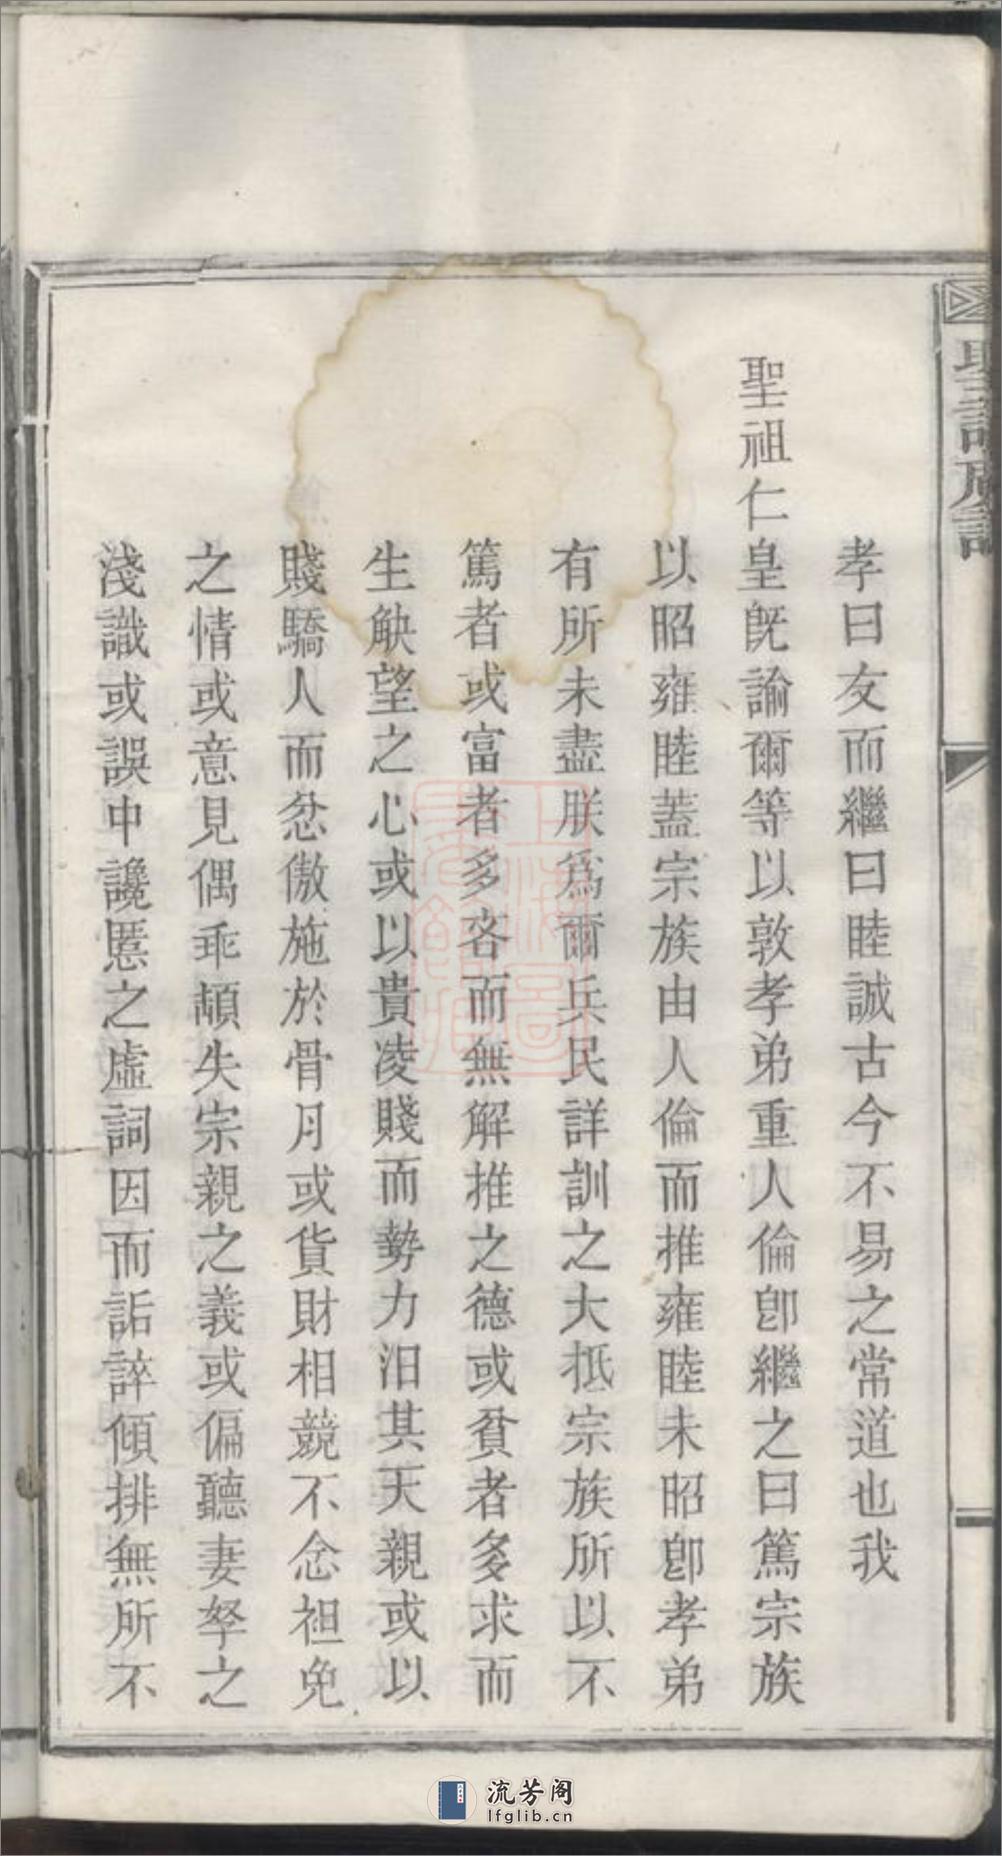 孝曰友而繼曰睦誠古今不易之常道也我
聖祖仁皇旣諭爾等以敦孝弟重人倫卽繼之曰篤宗族
以昭雍睦蓋宗族由人倫而推雍睦未昭卽孝弟
有所未盡朕爲爾兵民詳訓之大抵宗族所以不
篤者或富者多吝而無解推之德或貧者多求而
生觖望之心或以貴凌賤而勢力汨其天親或以
賤驕人而忿傲施於骨月或貨財相競不念袒免
之情或意見偶乖頓失宗親之義或偏聽妻孥之
淺識或誤中讒慝之虛詞因而詬誶傾排無所不
流芳阁
lfglib.cn